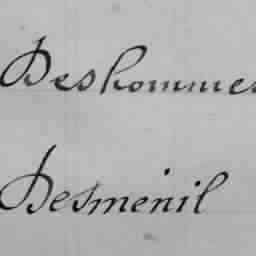 Deshommes
Desménil